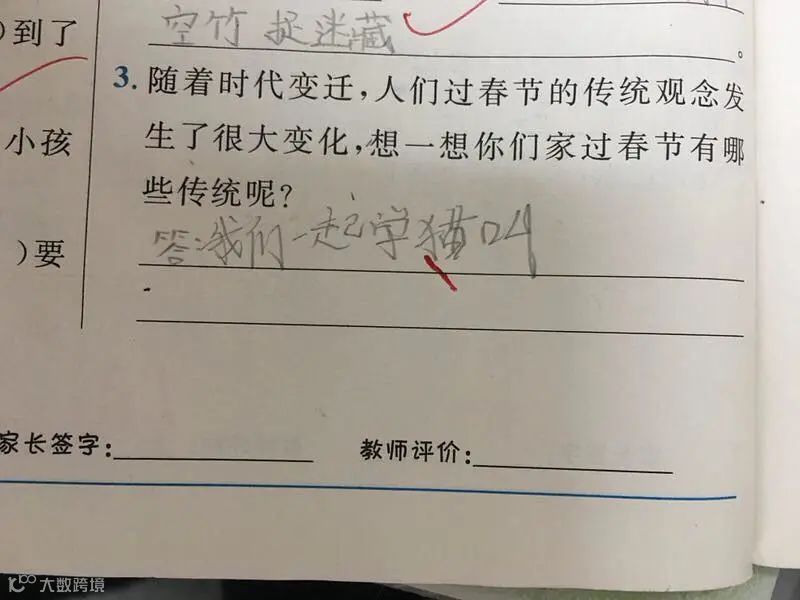 )到了
空竹 捉迷藏
。
3. 随着时代变迁，人们过春节的传统观念发
小孩
生了很大变化，想一想你们家过春节有哪
些传统呢？
)要
答：我们一起学猫叫
家长签字：
教师评价：
大数跨境